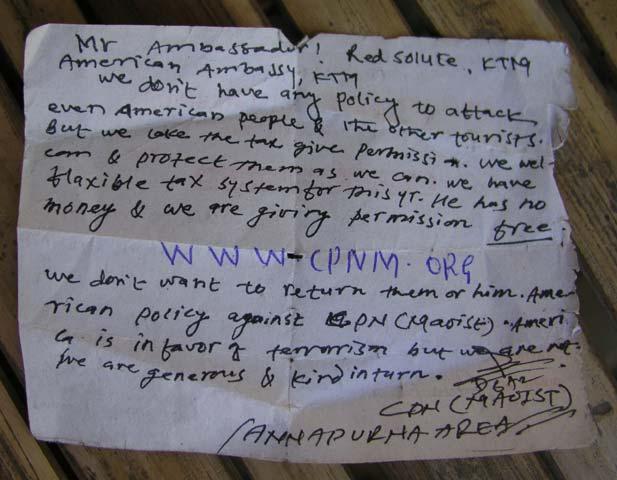 Mr Ambassador! Red solute, KTM
American Ambassy, KTM
we don't have any policy to attack
even American people & the other tourists.
But we take the tax give permission. we wel-
com & protect them as we can. we have
flaxible tax system for this yr. He has no
money & we are giving permission free.
WWW.CPNM.ORG
we don't want to return them or him. Ame-
rican policy against CPN (Maoist). Ameri
ca is in favor of terrorism but we are not.
we are generous & kind in turn.
CPN (MAOIST)
ANNAPURNA AREA